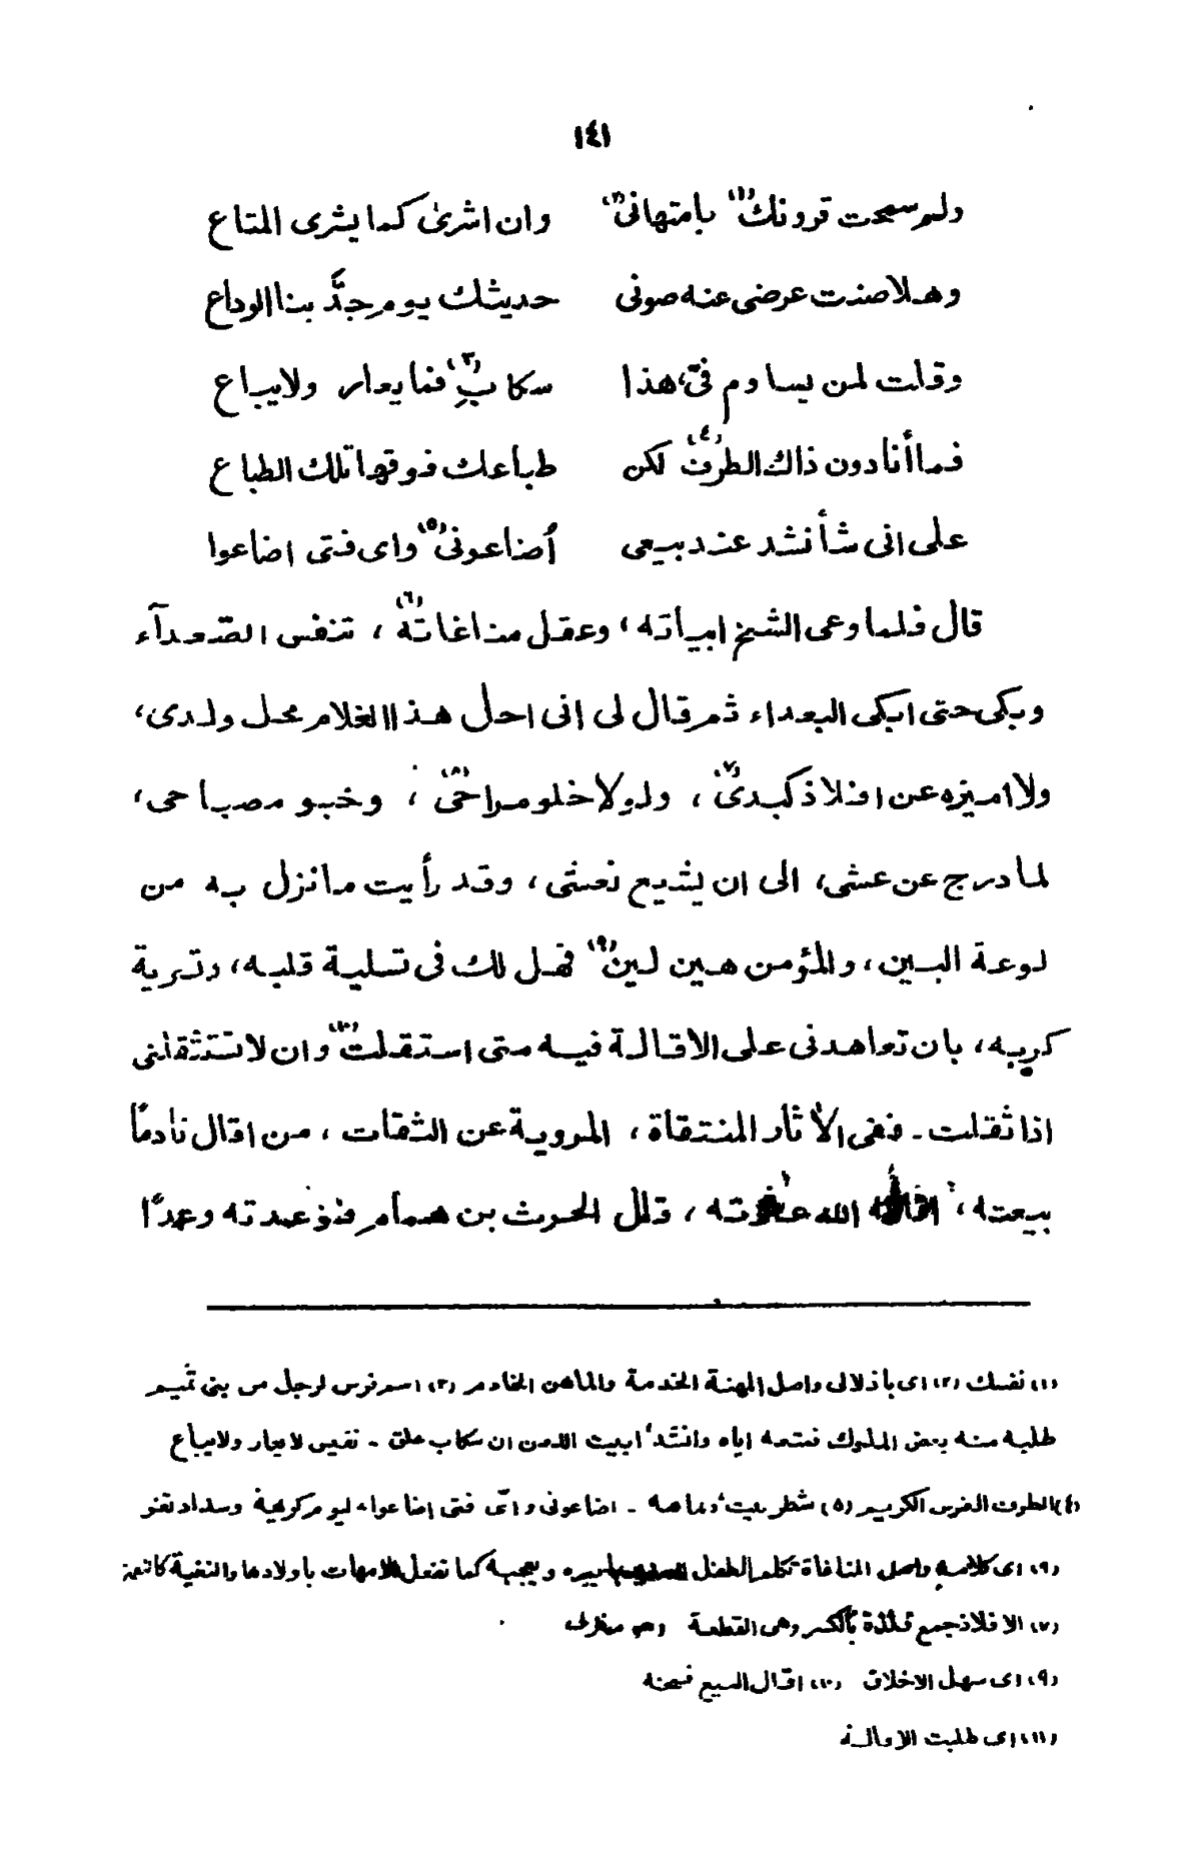 ١٤١
ولم سمحت قرونك (١) بامتهانى (٢) وان اشرىٰ كما يشرى المتاع
وهلا صنت عرضى عنه صونى حديثك يوم جدَّ بنا الوداع
وقلت لمن يساوم فىّ، هذا سكابِ (٣) فما يعار ولا يباع
فما أنا دون ذاك الطرف (٤) لكن طباعك فوقها تلك الطباع
على انى سأنشد عند بيعى أضاعونى (٥) واى فتى اضاعوا
قال فلما وعى الشيخ ابياته، وعقل مناغاته (٦)، تنفس الصّعدآء
وبكى حتى ابكى البعداء ثم قال لى انى احل هذا الغلام محل ولدى،
ولا اميزه عن افلاذ كبدى (٧)، ولولا خلو مراحى (٨)، وخبو مصباحى،
لما درج عن عشى، الى ان يشيع نعشى، وقد رأيت ما نزل به من
لوعة البين، والمؤمن هين لين (٩) فهل لك فى تسلية قلبه، وتسرية
كربه، بان تعاهدنى على الاقالة فيه متى استقلت (١٠) وان لا تستثقلنى
اذا ثقلت ـ ففى الأثار المنتقاة، المروية عن الثقات، من اقال نادمًا
بيعته، اقاله الله عثرته، قال الحرث بن همام فوعدته وعدًا
(١) نفسك (٢) اى باذلالى واصل المهنة الخدمة والماهن الخادم (٣) اسم فرس لرجل من بنى تميم
طلبه منه بعض الملوك فمنعه اياه وانشد ابيت اللعن ان سكاب علق ـ نفيس لا يعار ولا يباع
(٤) الطرف الفرس الكريم (٥) شطر بيت وتمامه ـ اضاعونى واىّ فتى اضاعوا، ليوم كريهة وسداد ثغر
(٦) اى كلامه واصل المناغاة تكلم الطفل بما يسره ويعجبه كما تفعل الامهات باولادها
(٧) الافلاذ جمع فلذة بالكسر وهى القطعة
(٩) اى سهل الاخلاق (١٠) اقال البيع فسخه
(١١) اى طلبت الاقالة